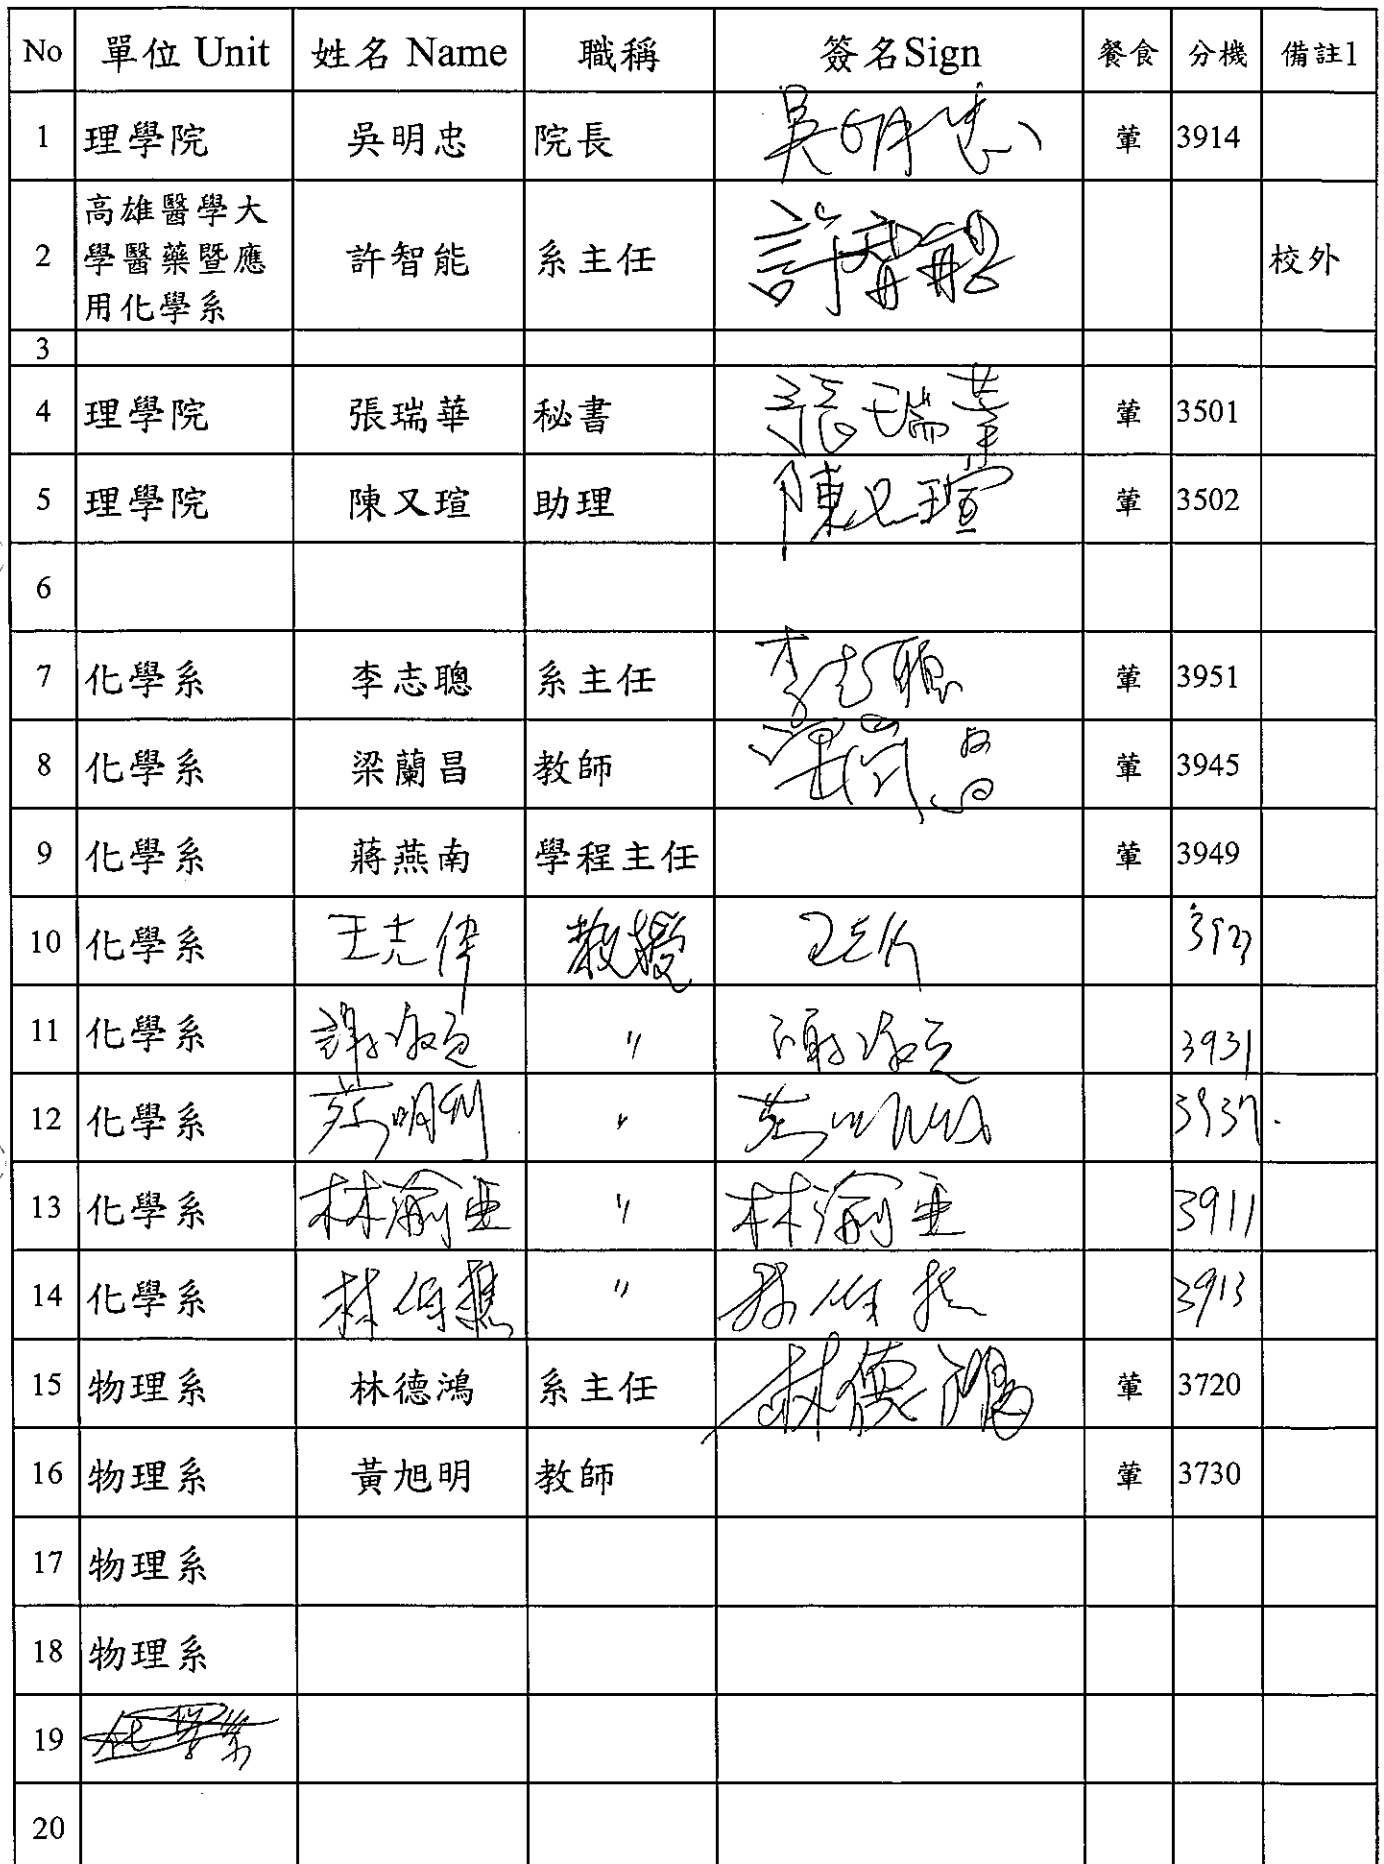 No 單位 Unit 姓名 Name 職稱 簽名Sign 餐食 分機 備註1
1 理學院 吳明忠 院長 吳明忠 葷 3914
高雄醫學大
2 學醫藥暨應 許智能 系主任 許智能 校外
用化學系
3
4 理學院 張瑞華 秘書 張瑞華 葷 3501
5 理學院 陳又瑄 助理 陳又瑄 葷 3502
6
7 化學系 李志聰 系主任 李志聰 葷 3951
8 化學系 梁蘭昌 教師 梁蘭昌 葷 3945
9 化學系 蔣燕南 學程主任 葷 3949
10 化學系 王志偉 教授 3923
11 化學系 〃 3931
12 化學系 〃 3937
13 化學系 林渝亞 〃 林渝亞 3911
14 化學系 林伯樵 〃 3913
15 物理系 林德鴻 系主任 林德鴻 葷 3720
16 物理系 黃旭明 教師 葷 3730
17 物理系
18 物理系
19 化學系
20